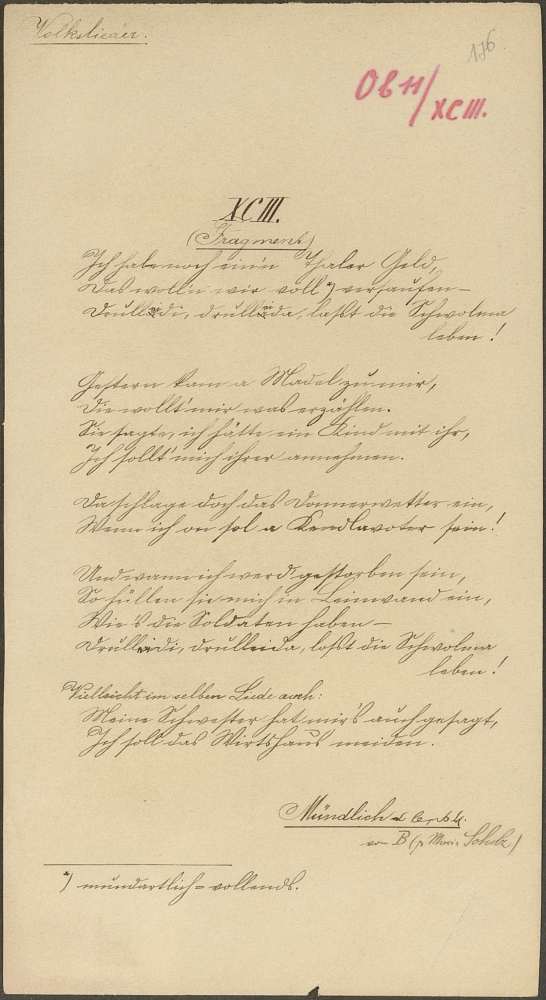 Volkslieder.
176.
OB 11/XCIII.
XCIII.
(Fragment)
Ich habe noch ein'n Thaler Geld,
Das woll'n wir voll *) versaufen –
Drulleidi, drulleida, lasst die Schwolma
leben!
Gestern kam a Madel zu mir,
Die wollt' mir was erzählen.
Sie sagte, ich hätte ein Kind mit ihr,
Ich sollt' mich ihrer annehmen.
Da schlage doch das Donnerwetter ein,
Wenn ich on sol a Kendlavoter sein!
Und wann ich werd' gestorben sein,
So hüllen sie mich in Leinwand ein,
Wie's die Soldaten haben –
Drulleidi, drulleida, losst die Schwolma
leben!
Vielleicht im selben Liede auch:
Meine Schwester hat mir's auch gesagt,
Ich soll das Wirtshaus meiden.
Mündlich
von B Scholz)
*) mundartlich = vollends.